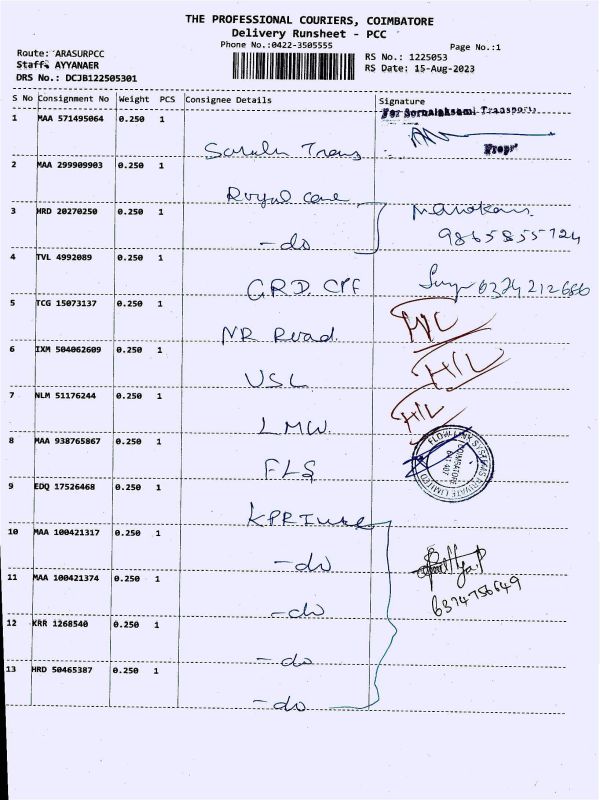 THE PROFESSIONAL COURIERS, COIMBATORE
Delivery Runsheet - PCC
Phone No.:0422-3505555
Page No.:1
Route: ARASURPCC
Staff: AYYANAER
DRS No.: DCJB122505301
RS No.: 1225053
RS Date: 15-Aug-2023
S No Consignment No Weight PCS Consignee Details Signature
For Sornalaksmi Transports
1 MAA 571495064 0.250 1
Propr
2 MAA 299909903 0.250 1
Royal care
3 HRD 20270250 0.250 1
9865855724
-do
4 TVL 4992089 0.250 1
GRD CPF 6374212686
5 TCG 15073137 0.250 1
NR Road
6 IXM 504062609 0.250 1
H/L
USL
7 NLM 51176244 0.250 1
H/L
LMW
8 MAA 938765867 0.250 1
FLOWLINK SYSTEMS PRIVATE LIMITED
COIMBATORE
641 407
FLS
9 EDQ 17526468 0.250 1
10 MAA 100421317 0.250 1
-do
11 MAA 100421374 0.250 1
6374756649
-do
12 KRR 1268540 0.250 1
-do
13 HRD 50465387 0.250 1
-do